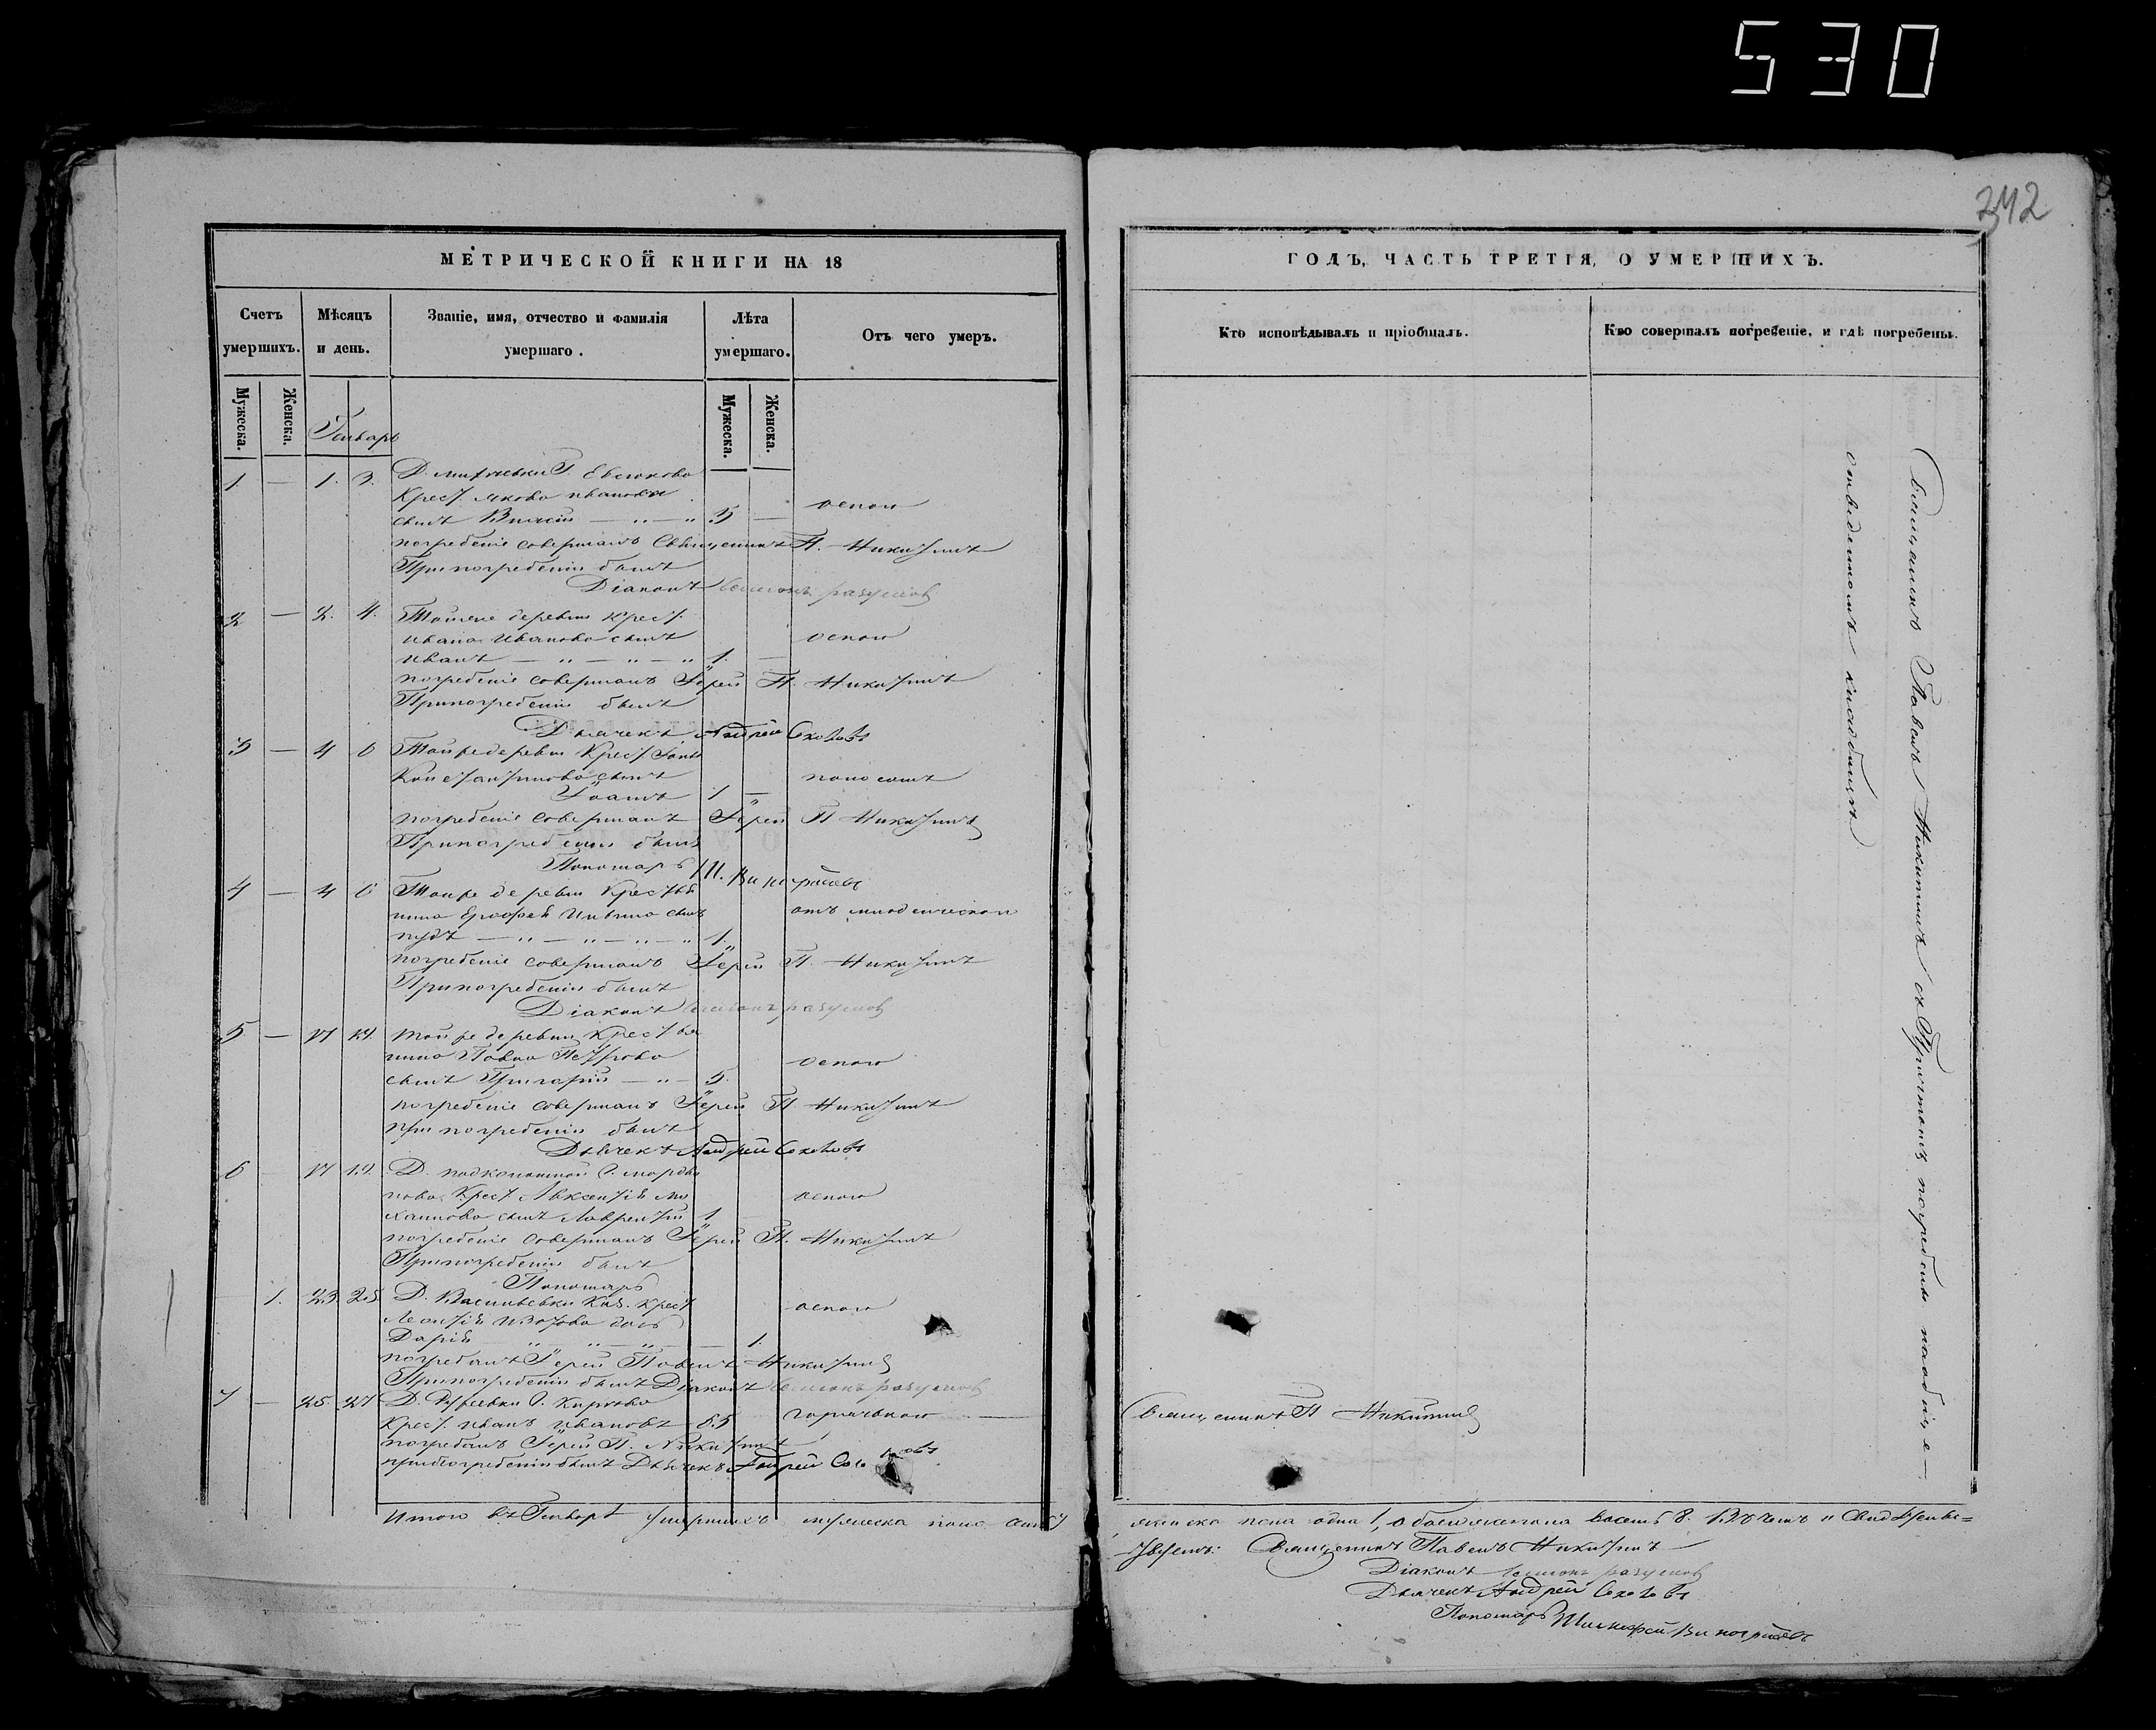 530
342
МЕТРИЧЕСКОЙ КНИГИ НА 18
Счетъ умершихъ.
Мѣсяцъ и день.
Званіе, имя, отчество и фамилія умершаго.
Лѣта умершаго.
Отъ чего умеръ.
Мужеска.
Женска.
Мужеска.
Женска.
Генварь
1 — 1. 3. Дмитревки Г. Евсюкова
Крест. Якова Иванова
сынъ — „ — „ 5 — оспою
погребеніе совершалъ Священникъ П. Никитинъ
При погребеніи былъ
Діаконъ разумов
2 — 2. 4. Тойже деревни Крест.
Ивана Иванова сынъ оспою
Иванъ — „ — „ — „ 1. —
погребеніе совершалъ Іерей П. Никитинъ
При погребеніи былъ
Дьячекъ Андрей Соколовъ
3 — 4 6 Тойже деревни Крест.
Константинова сынъ поносомъ
Іоаннъ 1 —
погребеніе совершалъ Іерей П Никитинъ
При погребеніи былъ
Пономарь
4 — 4 6 Тойже деревни Крестья
нина сынъ отъ младенческой
— „ — „ — „ — „ 1.
погребеніе совершалъ Іерей П. Никитинъ
При погребеніи былъ
Діаконъ разумов
5 — 17 19. тойже деревни Крестья
нина Павла Петрова оспою
сынъ Григорій — „ — 5.
погребеніе совершалъ Іерей П. Никитинъ
при погребеніи былъ
Дьячекъ Андрей Соколовъ
6 17 19. Д.
Крест. Авксентія Ми оспою
хайлова сынъ Лаврентій 1
погребеніе совершалъ Іерей П. Никитинъ
При погребеніи былъ
Пономарь
1. 23. 25. Д. Васильевки Крест оспою
Леонтія дочь
Дарія „ „ — „ — 1.
погребалъ Іерей Павелъ Никитинъ
При погребеніи былъ Діаконъ разумов
7 — 25 27 Д.
Крест. Иванъ Ивановъ 65 горячкою —
погребалъ Іерей П. Никитинъ
при погребеніи былъ Дьячекъ Андрей Соколовъ
Итого въ Генварѣ умершихъ мужеска пола семь 7
ГОДЪ, ЧАСТЬ ТРЕТІЯ, О УМЕРШИХЪ.
Кто исповѣдывалъ и пріобщалъ.
Кто совершалъ погребеніе, и гдѣ погребены.
Священникъ Павелъ Никитинъ съ Причтомъ погребены на общемъ
отведенномъ кладбищѣ
Священникъ П Никитинъ
женска пола одна 1, обоего пола восемь 8. Въ чемъ и Свидѣтельс=
твуемъ: Священникъ Павелъ Никитинъ
Діаконъ разумов
Дьячекъ Андрей Соколовъ
Пономарь